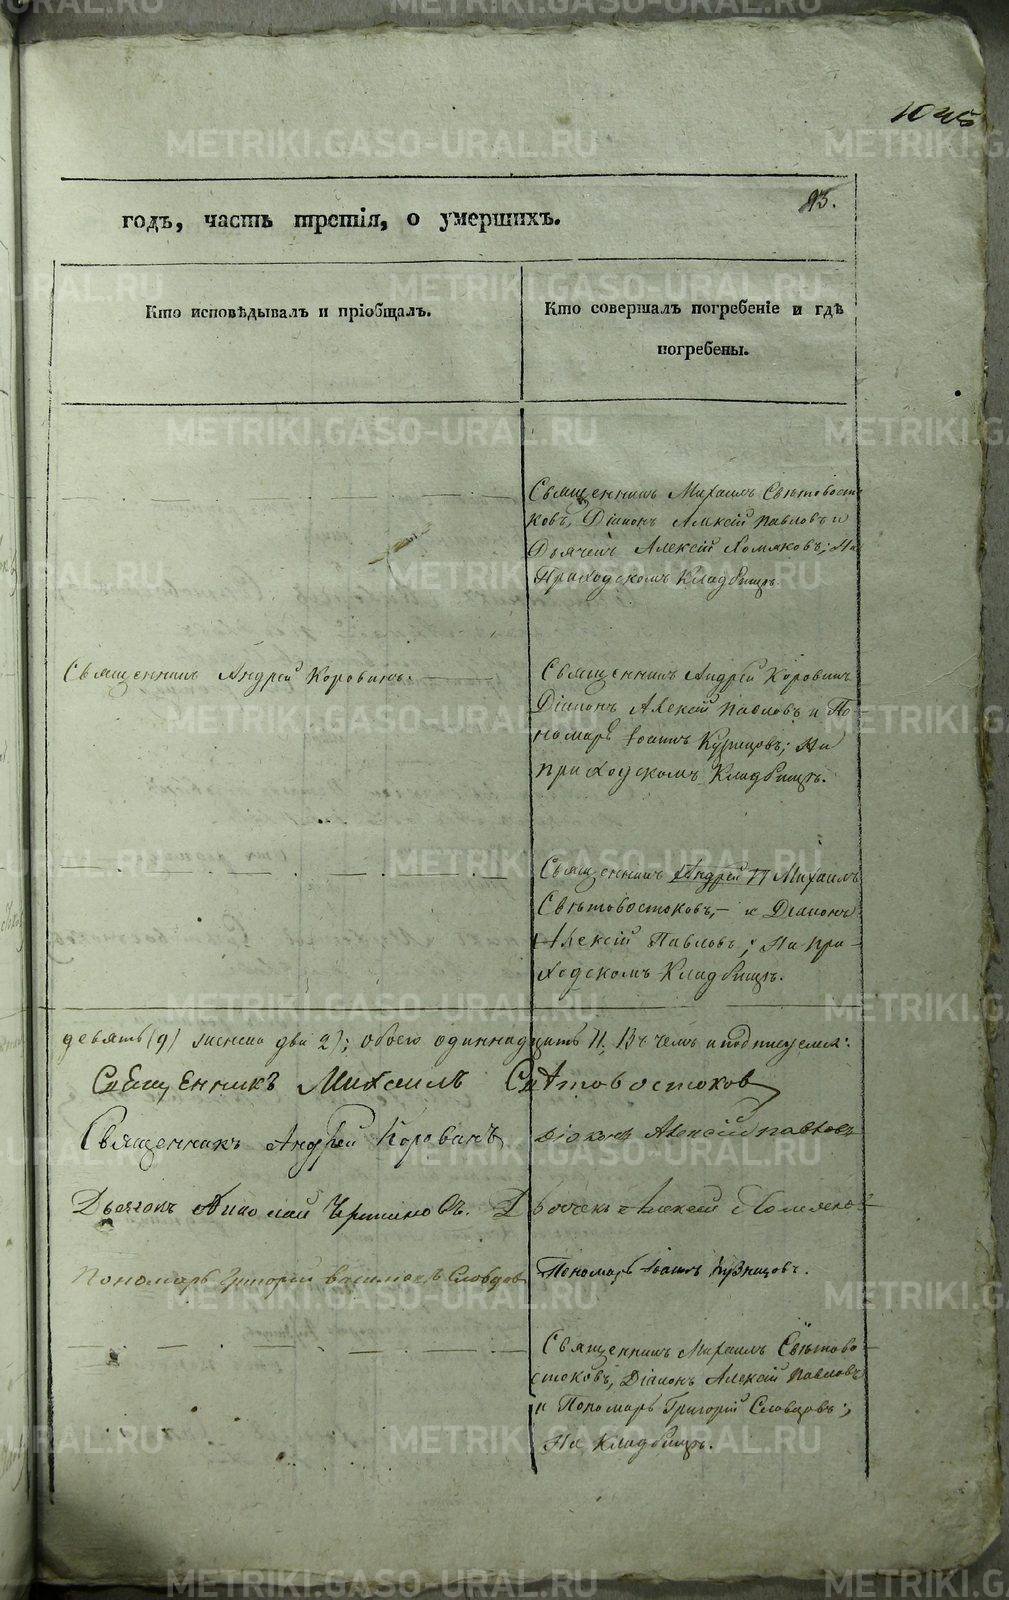 годъ, часть третія, о умершихъ.
Кто исповѣдывалъ и пріобщалъ.
Кто совершалъ погребеніе и гдѣ
погребены.
Священникъ Михаилъ Свѣтовосто
ковъ, Діаконъ Алексій Павловъ и
Дьячекъ Алексій Хомяковъ; На
Приходскомъ Кладбищѣ.
Священникъ Андрей Коровинъ.
Священникъ Андрей Коровинъ
Діаконъ Алексій Павловъ и По
номарь Іоаннъ Кузнецовъ; На
приходскомъ Кладбищѣ.
Священникъ Андрей Михаилъ
Свѣтовостоковъ, и Діаконъ
Алексій Павловъ; На при-
ходскомъ Кладбищѣ.
девять (9) женска два 2); обоего одиннадцать 11. Въ чемъ и подписуемся:
Священникъ Михаилъ Свѣтовостоковъ
Священникъ Андрей Коровинъ Діаконъ Алексій Павловъ
Дьячекъ Алексій Хомяковъ
Пономарь Григорій Словцовъ Пономарь Іоаннъ Кузнецовъ.
Священникъ Михаилъ Свѣтово-
стоковъ, Діаконъ Алексій Павловъ
и Пономарь Григорій Словцовъ;
На Кладбищѣ.
METRIKI.GASO-URAL.RU